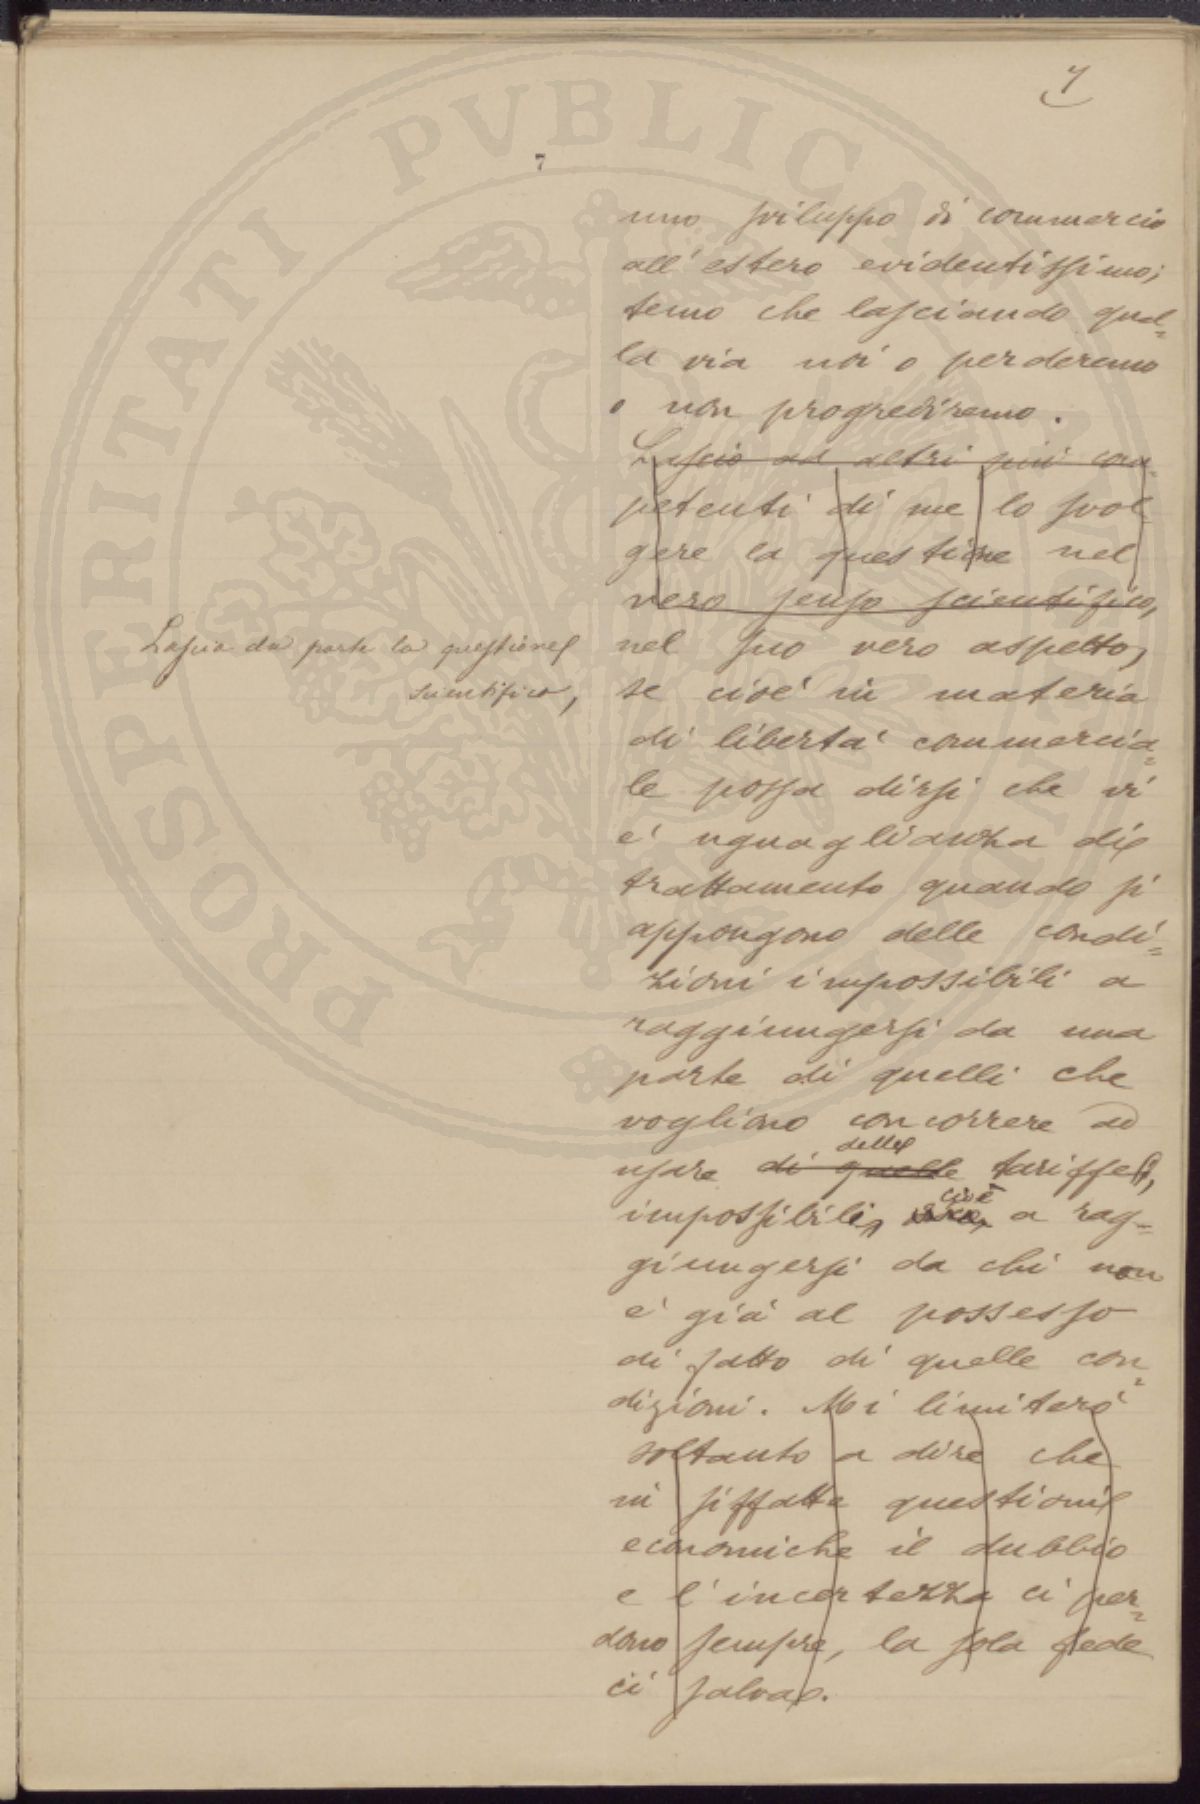 7
7
uno sviluppo di commercio
all'estero evidentissimo;
temo che lasciando quel=
la via noi o perderemo
o non progrediremo.
Lascio ad altri più com=
petenti di me lo svol=
gere la questione nel
vero senso scientifico,
Lascio da parte la questione
scientifica,
nel suo vero aspetto,
se cioè in materia
di libertà commercia=
le possa dirsi che vi
è uguaglianza di
trattamento quando si
appongono delle condi=
zioni impossibili a
raggiungersi da una
parte di quelli che
vogliono concorrere ad
delle
usare di quelle tariffe,
cioè
impossibili, a rag=
giungersi da chi non
è già al possesso
di fatto di quelle con=
dizioni. Mi limiterò
soltanto a dire che
in siffatte questioni
economiche il dubbio
e l'incertezza ci per=
dono sempre, la sola fede
ci salva.
PROSPERITATI PVBLICAE